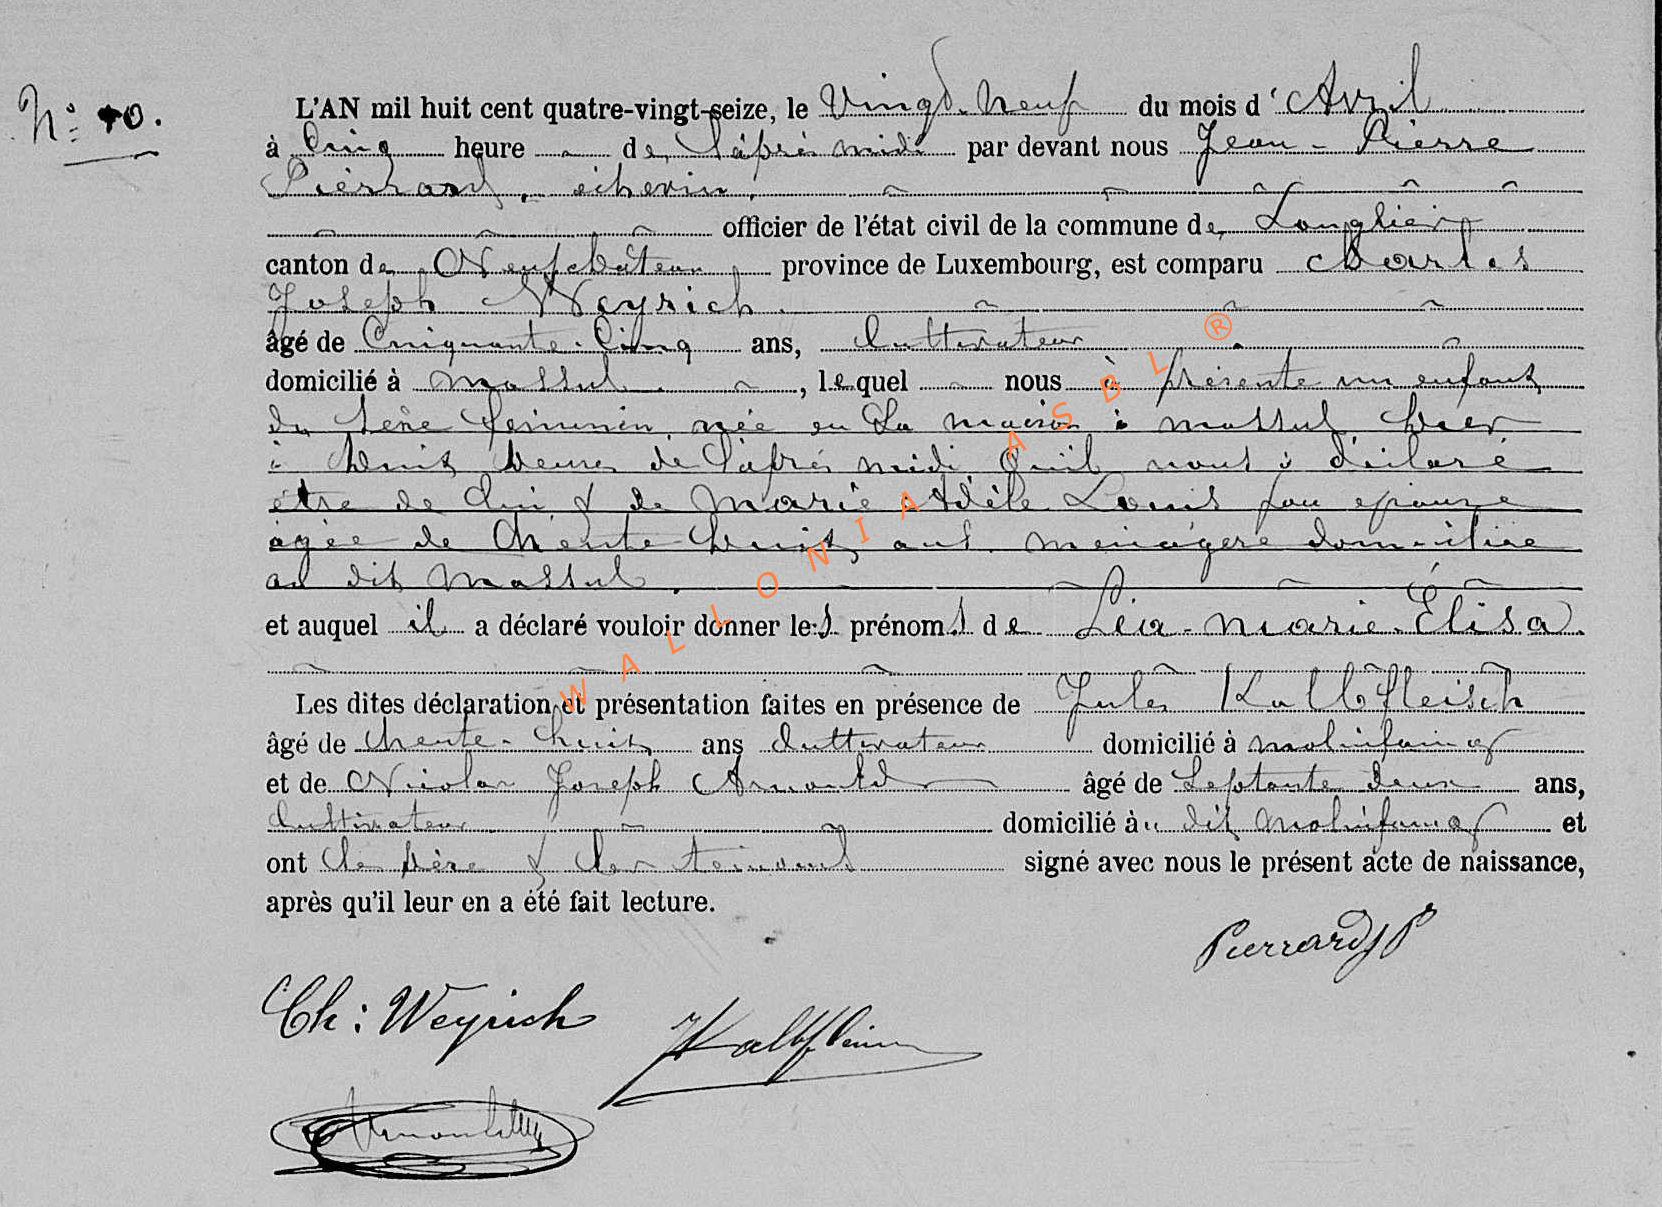 N° 40.
L'AN mil huit cent quatre-vingt-seize, le Vingt-Neuf du mois d'Avril
à Cinq heure de l'après midi par devant nous Jean-Pierre
Pierrard, échevin,
officier de l'état civil de la commune de Longlier
canton de Neufchâteau, province de Luxembourg, est comparu Charles
Joseph Weyrich.
âgé de Cinquante-Cinq ans, Cultivateur
domicilié à Massul, lequel nous à présenté un enfant
du sexe féminin née en sa maison à Massul hier
à huit heures de l'après midi qu'il nous à déclaré
être de lui & de Marie Adèle Louis son épouse
agée de trente huit ans ménagère domiciliée
au dit Massul.
et auquel il a déclaré vouloir donner les prénoms de Léa-Marie-Élisa.
Les dites déclaration et présentation faites en présence de Jules Kalbfleisch
âgé de trente-huit ans Cultivateur domicilié à Molinfaing
et de Nicolas Joseph Arnould âgé de Septante deux ans,
Cultivateur domicilié au dit Molinfaing et
ont le père & les témoins signé avec nous le présent acte de naissance,
après qu'il leur en a été fait lecture.
Pierrard JP
Ch: Weyrich
JKalbfleisch
Arnould
WALLONIA ASBL ®